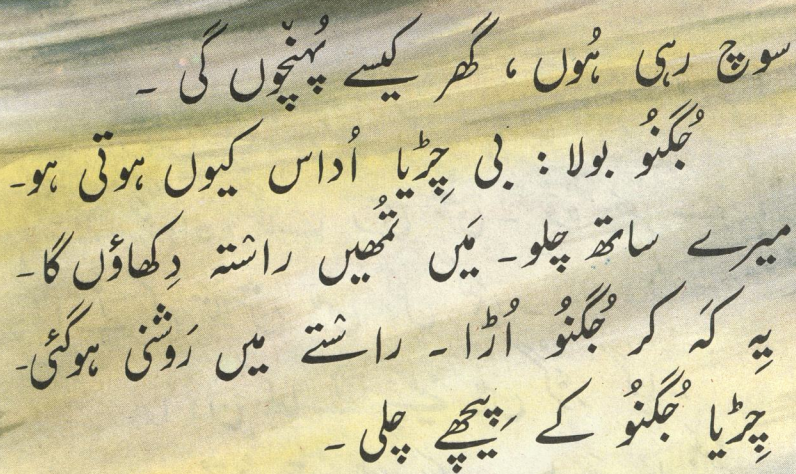 سوچ رہی ہُوں ، گھر کیسے پُہنچوں گی ۔
جُگنُو بولا : بی چِڑیا اُداس کیوں ہوتی ہو۔
میرے ساتھ چلو۔ مَیں تُمھیں راستہ دِکھاؤں گا۔
یِہ کَہ کر جُگنُو اُڑا ۔ راستے میں رَوشنی ہوگئی۔
چِڑیا جُگنُو کے پِیچھے چلی ۔